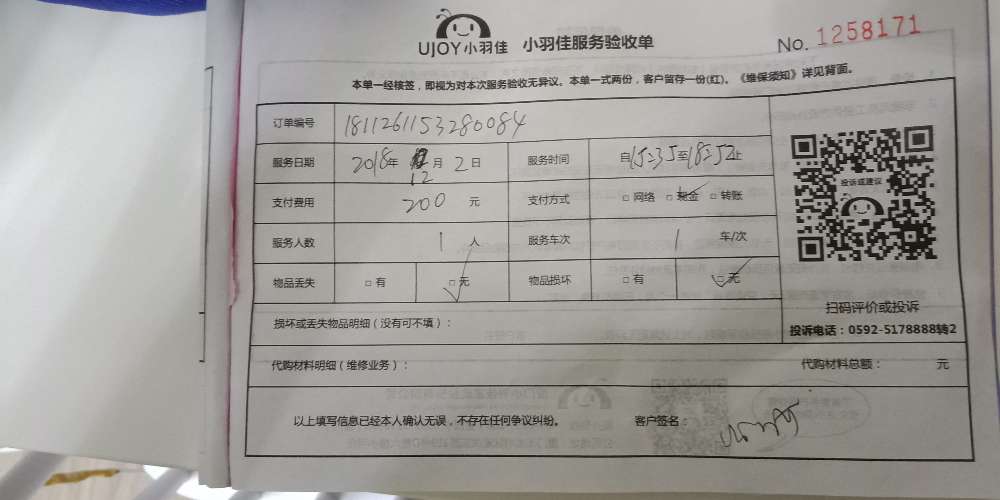 UJOY小羽佳 小羽佳服务验收单 No. 1258171
本单一经核签，即视为对本次服务验收无异议。本单一式两份，客户留存一份(红)。《维保须知》详见背面。
订单编号 1811261153280084
服务日期 2018年 12月 2日 服务时间 自15:35至18:52止
支付费用 200 元 支付方式 □ 网络 □ 现金 □ 转账
服务人数 1 人 服务车次 1 车/次
物品丢失 □ 有 □ 无 物品损坏 □ 有 □ 无
投诉或建议
扫码评价或投诉
投诉电话：0592-5178888转2
损坏或丢失物品明细（没有可不填）：
代购材料明细（维修业务）： 代购材料总额： 元
以上填写信息已经本人确认无误，不存在任何争议纠纷。 客户签名：